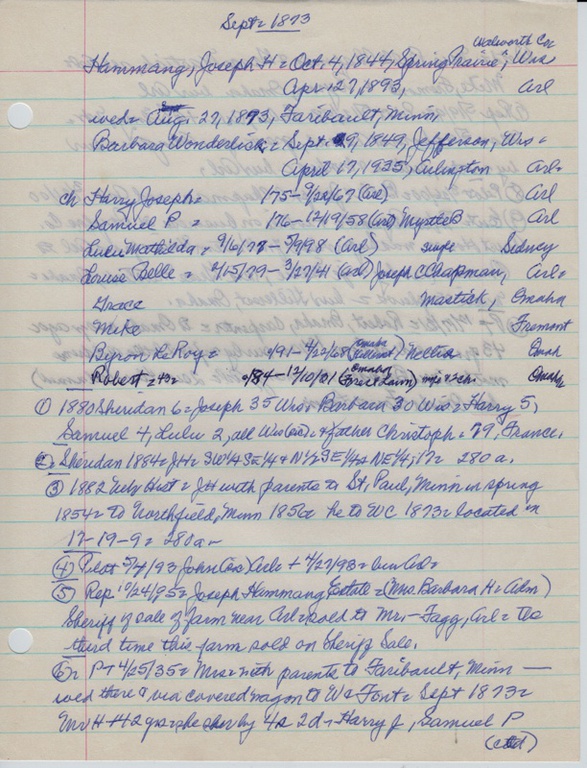 Sept = 1873
Walworth Co
Hammang, Joseph H = Oct. 4, 1844, Spring Prairie, Wis
Apr. 27, 1893, Arl
wed = Aug. 27, 1873, Faribault, Minn,
Barbara Wonderlick = Sept. 9, 1849, Jefferson, Wis =
April 17, 1935, Arlington Arl =
ch Harry Joseph = 175 - 9/22/67 (Arl) Arl
Samuel P = 176 - 12/19/58 (Arl) Myrtle B Arl
Lulu Mathilda = 9/6/77 - 5/9/98 (Arl) single Sidney
Louise Belle = 2/15/79 - 3/27/41 (Arl) Joseph C Chapman, Arl =
Grace Mastick, Omaha
Mike Fremont
Byron LeRoy = 9/91 - 4/22/68 (Omaha) Nellie Omah
Robert = 43 = 9/84 - 12/10/01 (Omaha Forest Lawn) Omaha
① 1880 Sheridan 6 = Joseph 35 Wis, Barbara 30 Wis = Harry 5,
Samuel 4, Lulu 2, all Wis = & father Christoph = 79, France.
② = Sheridan 1884 = JH = SW¼ SE¼ & N½ SE¼ & NE¼, 17 = 280 a.
③ 1882 Hist = JH with parents to St. Paul, Minn in spring
1854 = to Northfield, Minn 1856 = he to WC 1873 = located in
17-19-9 = 280 a =
④ Pilot 5/4/93 John Arl + 4/27/93 =
⑤ Rep 10/24/95 = Joseph Hammang Estate = (Mrs. Barbara H = Adm)
Sheriff of sale of farm near Arl = sold to Mr. - Fagg, Arl = the
third time this farm sold on Sheriff Sale.
⑥ = P + 4/25/35 = Mrs = with parents to Faribault, Minn —
wed there & via covered wagon to Font = Sept 1873 =
4s 2d = Harry J, Samuel P
(ctd)